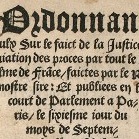 Ordonnan
aulx Sur le faict de la Justice
uiation des proces par tout le
me de Frãce/ faictes par le R
nostre sire: Et publiees en l
court de Parlement a Pa
ris/ le sixiesme iour du
moys de Septem,